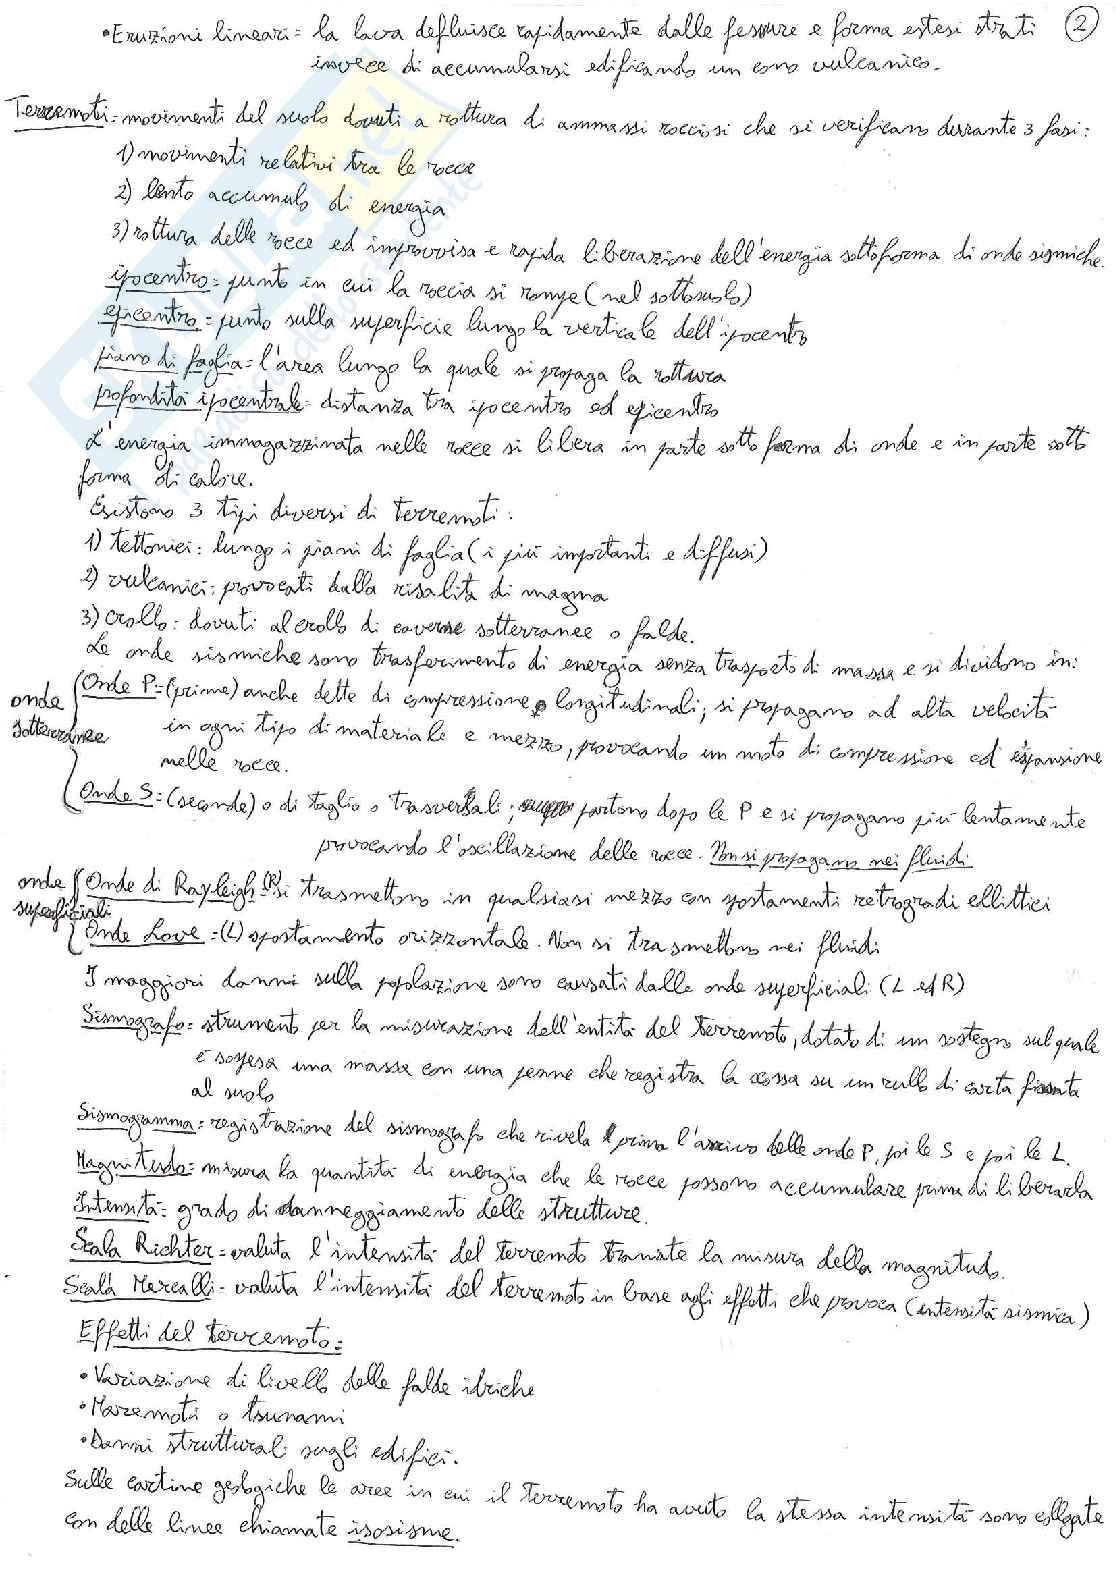 •Eruzioni lineari= la lava defluisce rapidamente dalle fessure e forma estesi strati
2
invece di accumularsi edificando un cono vulcanico.
Terremoti= movimenti del suolo dovuti a rottura di ammassi rocciosi che si verificano durante 3 fasi:
1) movimenti relativi tra le rocce
2) lento accumulo di energia
3) rottura delle rocce ed improvvisa e rapida liberazione dell'energia sottoforma di onde sismiche.
ipocentro= punto in cui la roccia si rompe (nel sottosuolo)
epicentro= punto sulla superficie lungo la verticale dell'ipocentro
piano di faglia= l'area lungo la quale si propaga la rottura
profondità ipocentrale= distanza tra ipocentro ed epicentro
L'energia immagazzinata nelle rocce si libera in parte sotto forma di onde e in parte sotto
forma di calore.
Esistono 3 tipi diversi di terremoti:
1) tettonici: lungo i piani di faglia (i più importanti e diffusi)
2) vulcanici: provocati dalla risalita di magma
3) crollo: dovuti al crollo di caverne sotterranee o falde.
Le onde sismiche sono trasferimento di energia senza trasporto di massa e si dividono in:
onde sotterranee
Onde P= (prime) anche dette di compressione o longitudinali; si propagano ad alta velocità
in ogni tipo di materiale e mezzo, provocando un moto di compressione ed espansione
nelle rocce.
Onde S= (seconde) o di taglio o trasversali; partono dopo le P e si propagano più lentamente
provocando l'oscillazione delle rocce. Non si propagano nei fluidi
onde superficiali
Onde di Rayleigh (R)= si trasmettono in qualsiasi mezzo con spostamenti retrogradi ellittici
Onde Love= (L) spostamento orizzontale. Non si trasmettono nei fluidi
I maggiori danni sulla poplazione sono causati dalle onde superficiali (L ed R)
Sismografo= strumento per la misurazione dell'entità del terremoto, dotato di un sostegno sul quale
è sospesa una massa con una penne che registra la scossa su un rullo di carta fissata
al suolo
Sismogramma= registrazione del sismografo che rivela prima l'arrivo delle onde P, poi le S e poi le L.
Magnitudo= misura la quantità di energia che le rocce possono accumulare prima di liberarla
Intensità= grado di danneggiamento delle strutture.
Scala Richter= valuta l'intensità del terremoto tramite la misura della magnitudo.
Scala Mercalli= valuta l'intensità del terremoto in base agli effetti che provoca (intensità sismica)
Effetti del terremoto=
•Variazione di livello delle falde idriche
•Maremoti o tsunami
•Danni strutturali sugli edifici.
Sulle cartine geologiche le aree in cui il terremoto ha avuto la stessa intensità sono collegate
con delle linee chiamate isosisme.